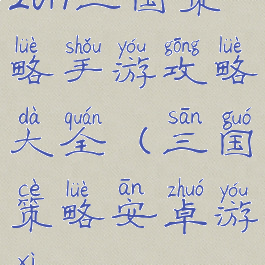 2017三国策
lüè shǒu yóu gōng lüè
略手游攻略
dà quán sān guó
大全（三国
cè lüè ān zhuó yóu
策略安卓游
xì